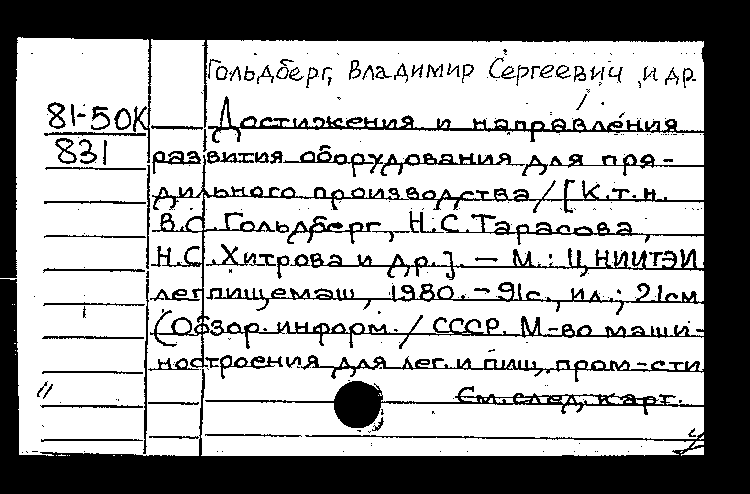 Гольдберг, Владимир Сергеевич и др.
81-50К Достижения и направления
831 развития оборудования для пря-
дильного производства / [К.т.н.
В.С. Гольдберг, Н.С. Тарасова,
Н.С. Хитрова и др.]. — М.: ЦНИИТЭИ
легпищемаш, 1980. - 91с., ил.; 21см
(Обзор. информ. / СССР. М-во маши-
ностроения для лег. и пищ. пром-сти
См. след. карт.